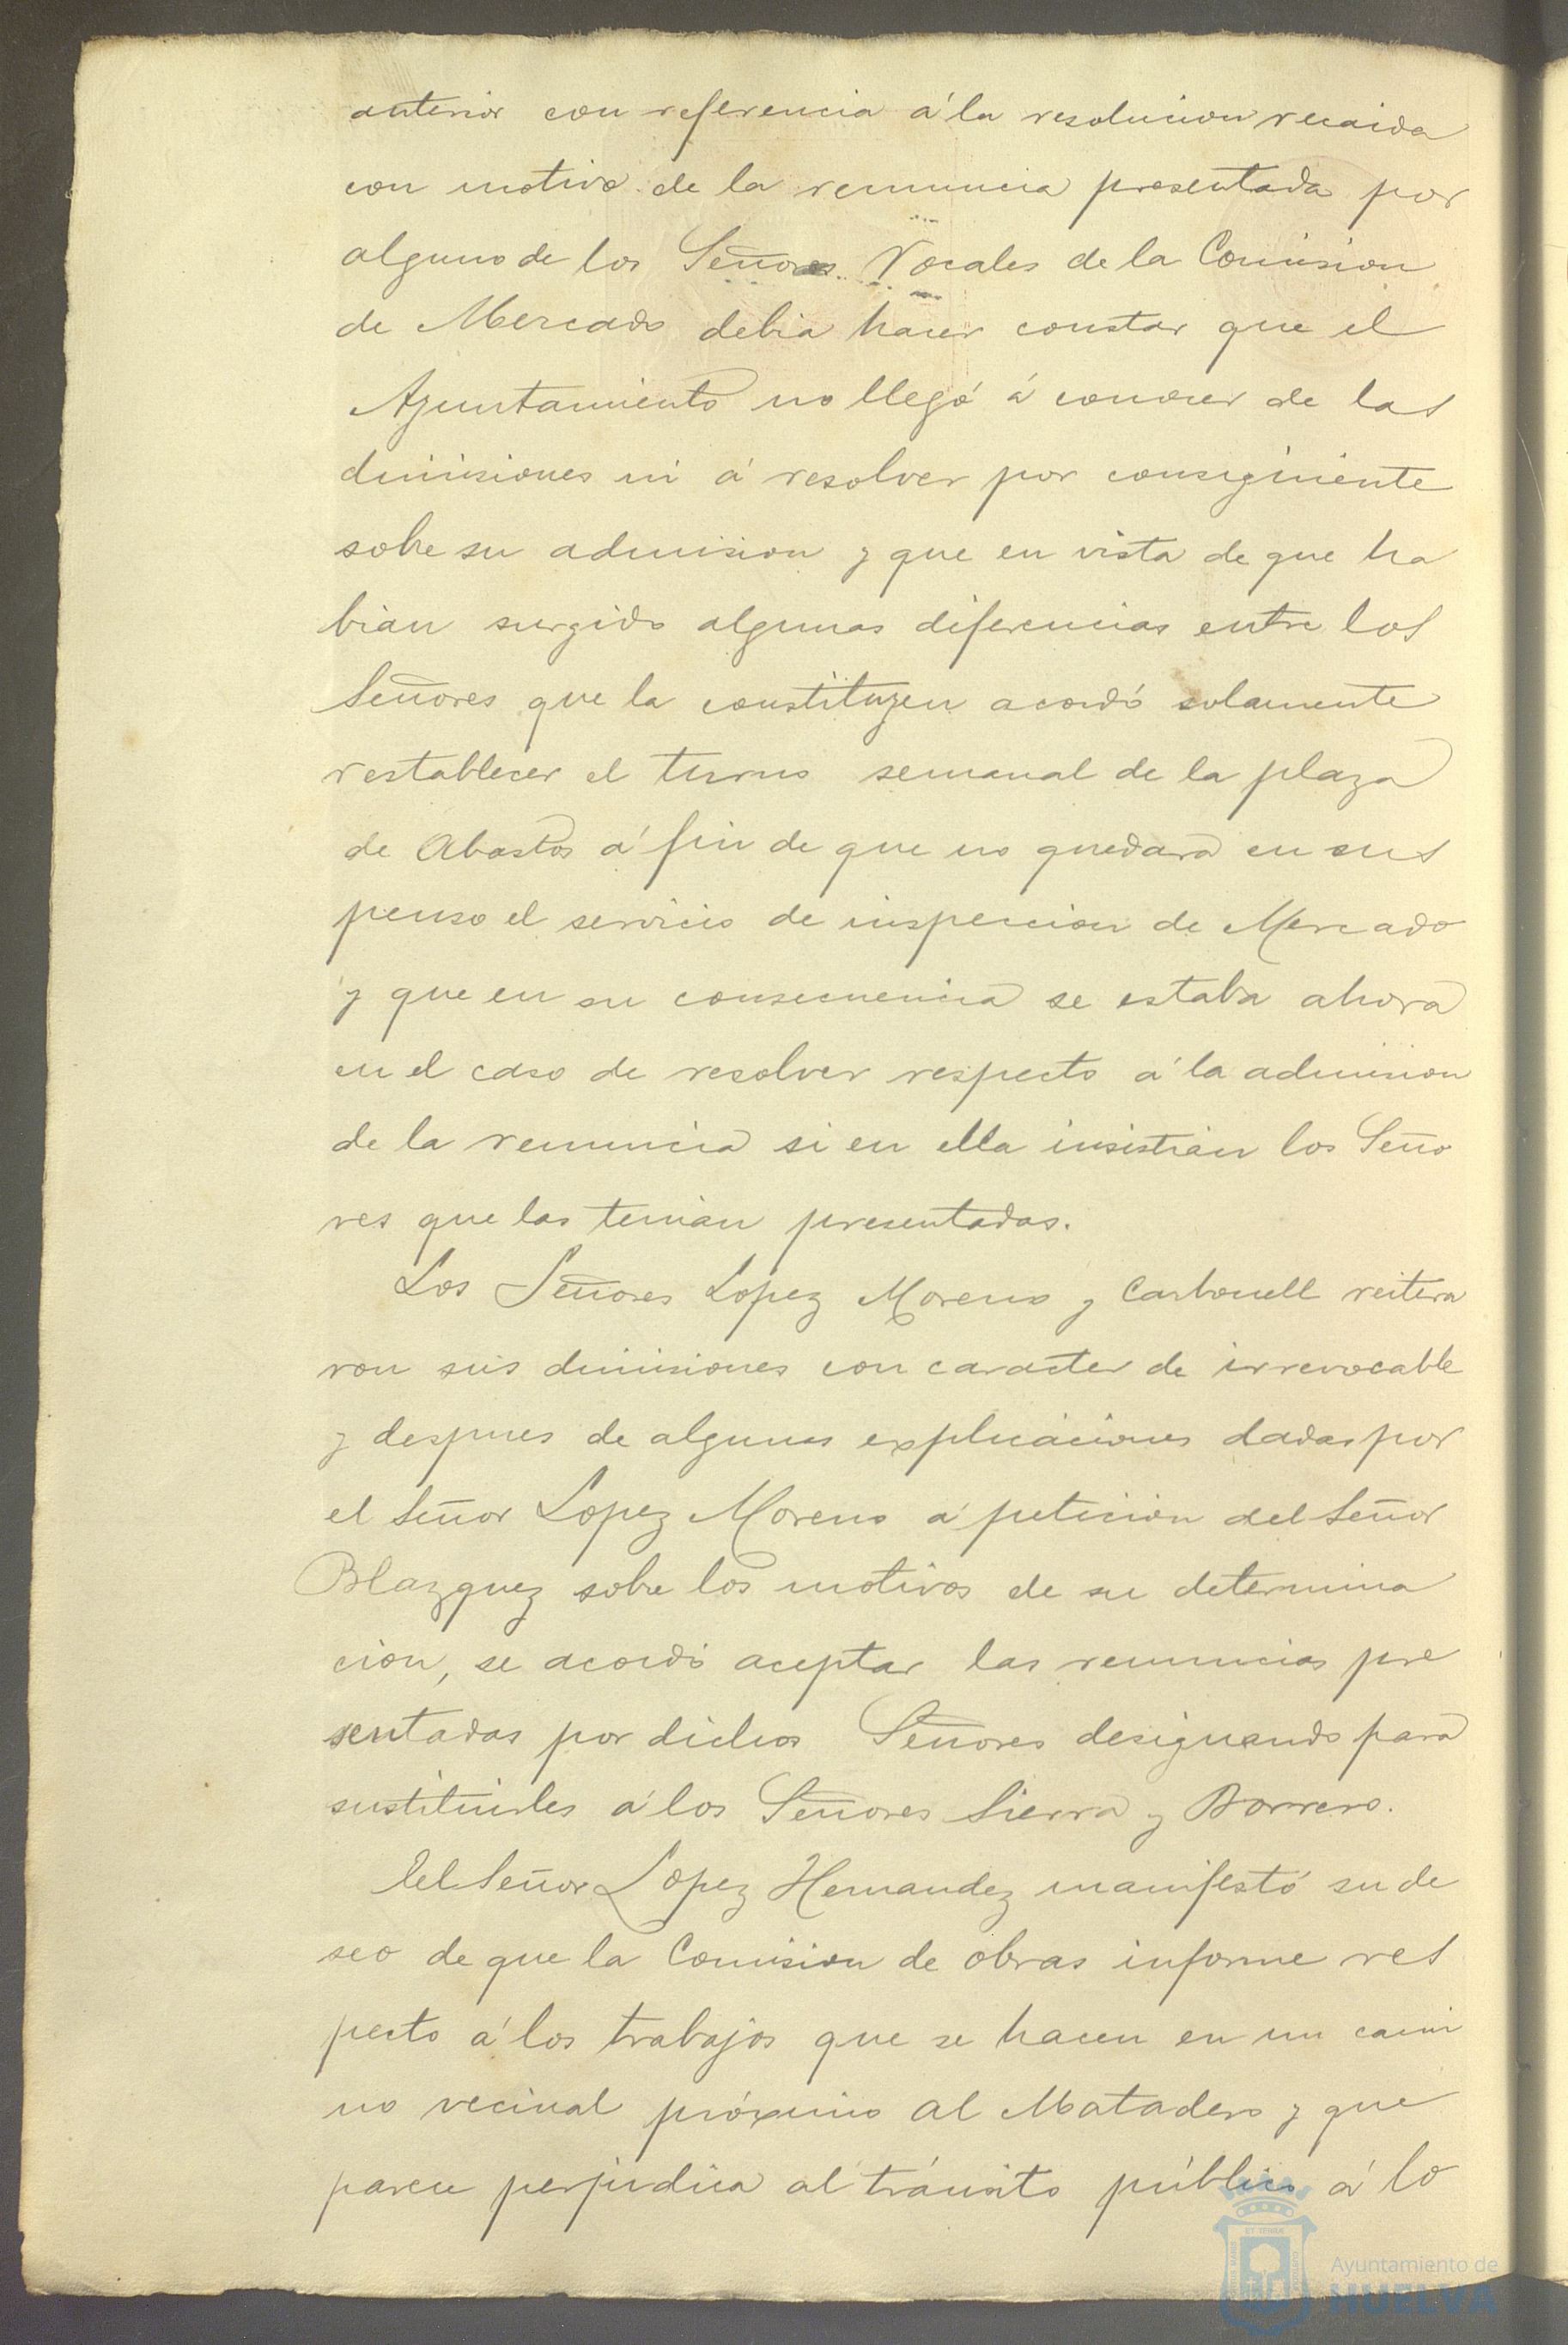 anterior con referencia á la resolucion recaida
con motivo de la renuncia presentada por
alguno de los Señores Vocales de la Comision
de Mercado debia hacer constar que el
Ayuntamiento no llegó á conocer de las
dimisiones ni á resolver por consiguiente
sobre su admision y que en vista de que ha
bian surgido algunas diferencias entre los
Señores que la constituyen acordó solamente
restablecer el turno semanal de la plaza
de Abastos á fin de que no quedara en sus
penso el servicio de inspeccion de Mercado
y que en su consecuencia se estaba ahora
en el caso de resolver respecto á la admision
de la renuncia si en ella insistian los Seño
res que las tenian presentadas.
Los Señores Lopez Moreno y Carbonell reitera
ron sus dimisiones con caracter de irrevocable
y despues de algunas explicaciones dadas por
el Señor Lopez Moreno á peticion del Señor
Blazquez sobre los motivos de su determina
cion, se acordó aceptar las renuncias pre
sentadas por dichos Señores designando para
sustituirles á los Señores Sierra y Borrero.
El Señor Lopez Hernandez manifestó su de
seo de que la Comision de obras informe res
pecto á los trabajos que se hacen en un cami
no vecinal próximo al Matadero y que
parece perjudica al tránsito público á lo
Ayuntamiento de
HUELVA